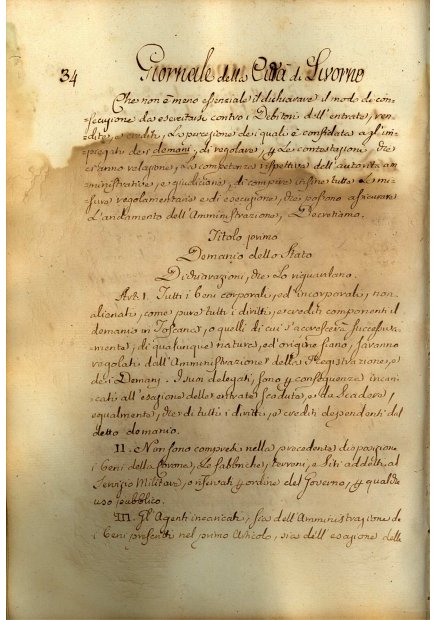 34 Giornale della Città di Livorno
Che non è meno essenziale il dichiarare il modo di con=
=secuzione da esercitarsi contro i Debitori dell'entrate, ren=
dite, e crediti, la percezione dei quali è confidata agl'im=
=piegati dei demani, di regolare, 4 le contestazioni, che
relazione, la competenza rispettiva dell'autorità am
ministrative, e giudiciarie, di compire infine tutte le mi=
sure regolamentarie e di esecuzione, che possono assicurare
l'andamento dell'Amministrazione, Decretiamo.
Titolo primo
Demanio dello Stato
Dichiarazioni, che lo riguardano.
Art. I. Tutti i beni corporali, ed incorporali, non
alienati, come pure tutti i diritti, e crediti componenti il
demanio in Toscana, o quelli di cui s'accrescerà successiva=
mente, di qualunque natura, ed origine siano, saranno
regolati dall'Amministrazione della Registrazione, e
dei Demani. I suoi delegati, sono 4 conseguenza incari=
=cati all'esazione delle entrate scadute, e da scadere,
equalmente, che di tutti i diritti, e crediti dependenti del
detto demanio.
II. Non sono compresi nella precedente disposizione
i beni della Corona, le fabbriche, terreni, e siti addetti al
servizio Militare, o riservati 4 ordine del Governo, 4 qualche
uso pubblico.
III. Gl'Agenti incaricati, sia dell'Amministrazione de
i beni presenti nel primo Articolo, sia dell'esazione delle